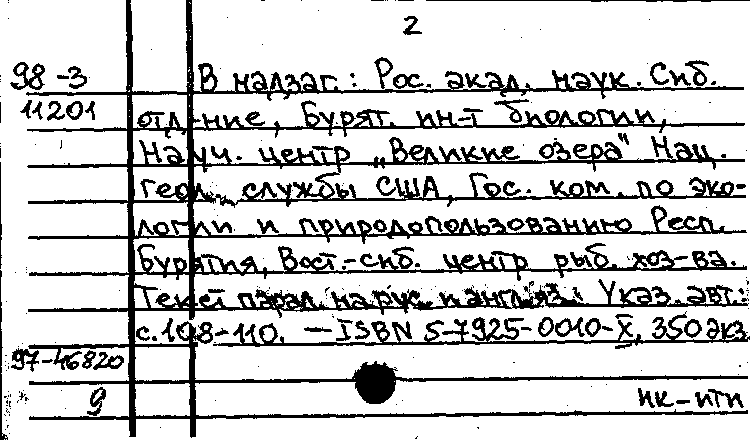 2
98-3
11201
В надзаг.: Рос. акад. наук. Сиб.
отд-ние, Бурят. ин-т биологии,
Науч. центр „Великие озера" Нац.
геол. службы США, Гос. ком. по эко-
логии и природопользованию Респ.
Бурятия, Вост.-сиб. центр рыб. хоз-ва.
Текст парал. на рус. и англ. яз. Указ. авт.:
с. 108-110. — ISBN 5-7925-0010-X, 350 экз
97-46820
9
нк-нти